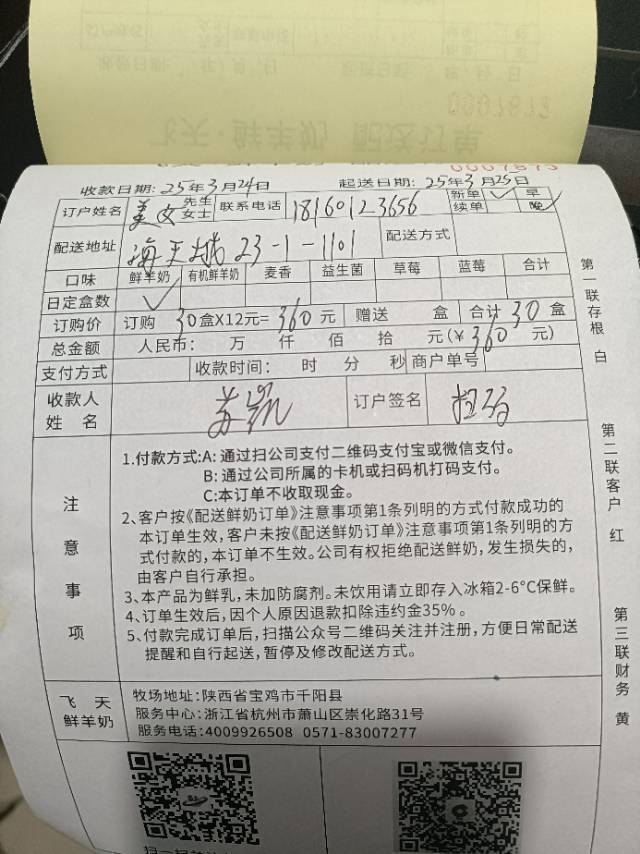 0007873
收款日期: 25年3月24日 起送日期: 25年3月25日
订户姓名 美女 先生 女士 联系电话 18160123656 新单 ✓ 续单 早 晚 ✓
配送地址 23-1-1101 配送方式
口味 鲜羊奶 有机鲜羊奶 麦香 益生菌 草莓 蓝莓 合计
日定盒数 ✓
订购价 订购 30盒X12元=360元 赠送 盒 合计30盒
总金额 人民币: 万 仟 佰 拾 元(¥360元)
支付方式 收款时间: 时 分 秒 商户单号
收款人姓名 苏凯 订户签名 扫码
注意事项
1.付款方式:A: 通过扫公司支付二维码支付宝或微信支付。
B: 通过公司所属的卡机或扫码机打码支付。
C:本订单不收取现金。
2、客户按《配送鲜奶订单》注意事项第1条列明的方式付款成功的
本订单生效, 客户未按《配送鲜奶订单》注意事项第1条列明的方
式付款的, 本订单不生效。公司有权拒绝配送鲜奶, 发生损失的,
由客户自行承担。
3、本产品为鲜乳, 未加防腐剂。未饮用请立即存入冰箱2-6°C保鲜。
4、订单生效后, 因个人原因退款扣除违约金35%。
5、付款完成订单后, 扫描公众号二维码关注并注册, 方便日常配送
提醒和自行起送, 暂停及修改配送方式。
飞天
鲜羊奶
牧场地址: 陕西省宝鸡市千阳县
服务中心: 浙江省杭州市萧山区崇化路31号
服务电话: 4009926508 0571-83007277
第一联存根 白
第二联客户 红
第三联财务 黄